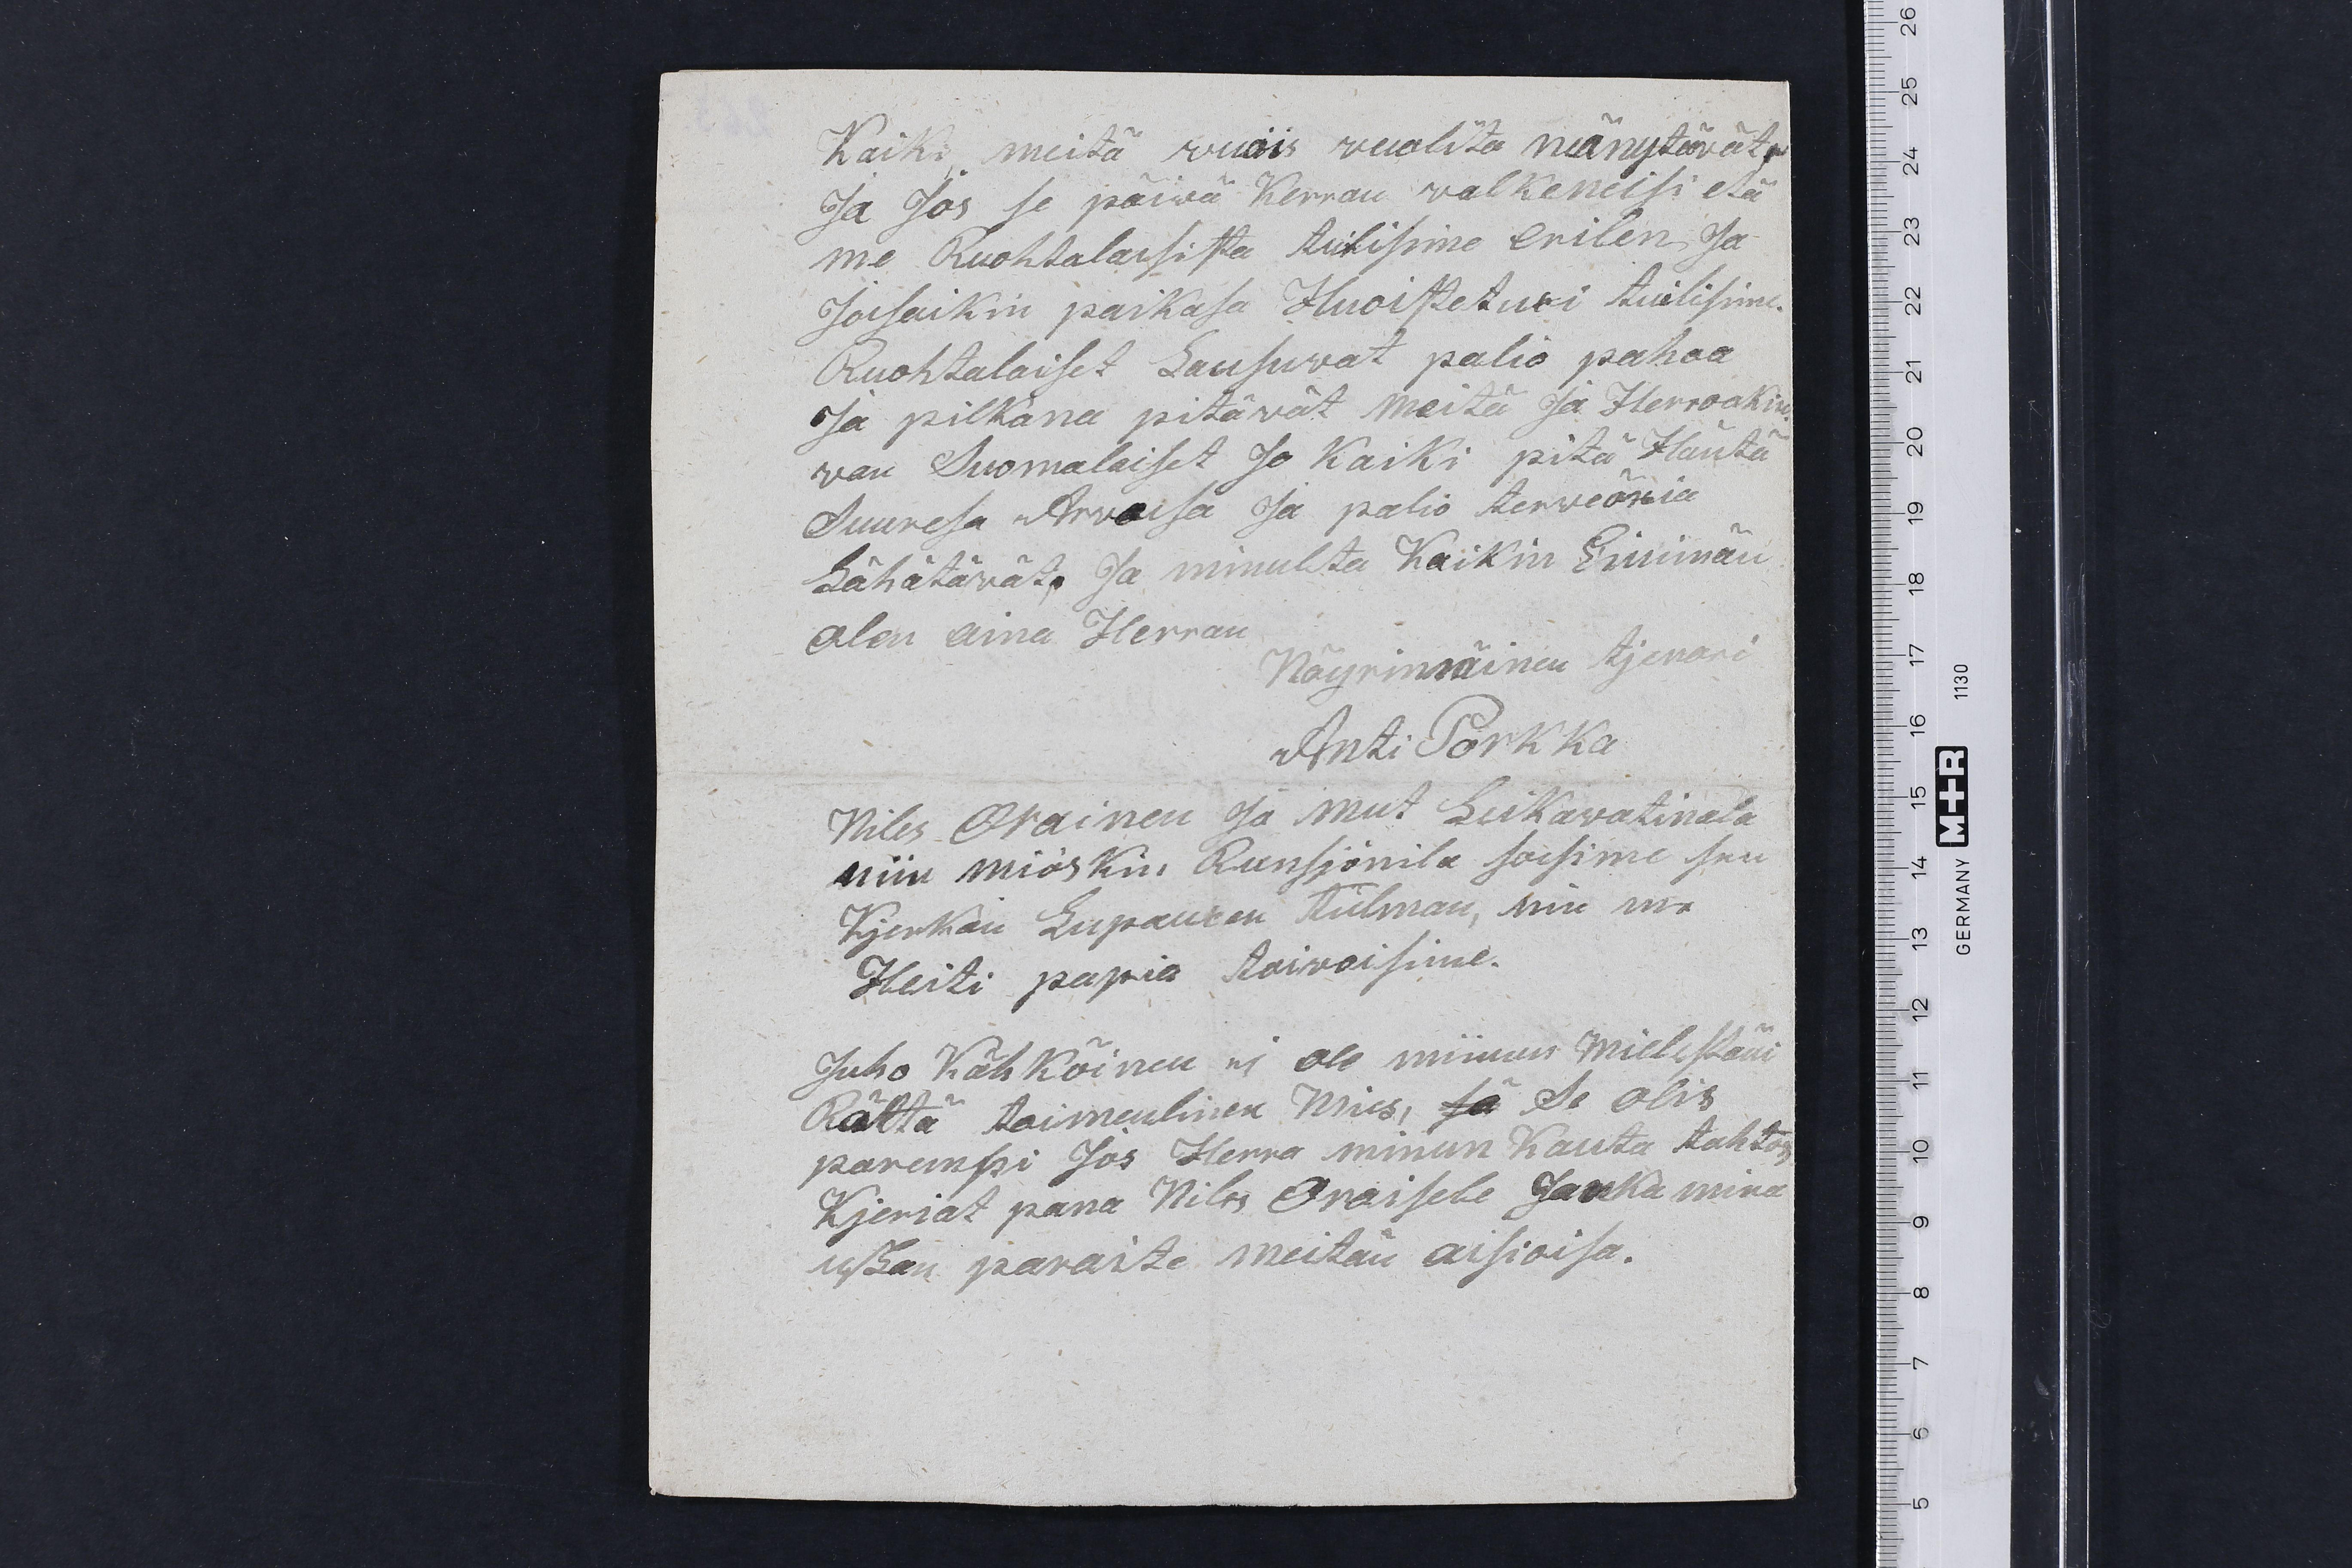 Kaiki meitä wuäis wualita nänytävät.
Ja Jos se päivä Kerran valkeneisi etä
me Ruohtalaisista tulisime erilen Ja
Joisaikin paikasa Huoistetuxi tulisime.
Ruohtalaiset Lausuvat palio pahaa
Ja pilkana pitävät meitä Ja Herroakin
van Suomalaiset Jo Kaiki pitä Häntä
Suuresa Arvoisa Ja palio terveöxia
Lähätävät. Ja minulta Kaikin Enimän
olen aina Herran
Nöyrinmäinen tjenari
Anti Porkka
Niles Orainen Ja mut Leikavatinala
niin miöskin Runsjönila soisime sen
Kjerkän Lupauxen tulman, niin me
Heiti papia toivoisime.
Juho Kähköinen ei ole minun mielestäni
Rältä toimenlinen Mies, Se olis
parempi Jos Herra minun Kauta tahtos
Kjeriat pana Niles Oraisele Jonka mina
uskon paraite meitän aisioisa.
26
25
24
23
22
21
20
19
18
17
16
15
14
13
12
11
10
9
8
7
6
5
GERMANY M+R 1130